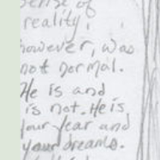 sense of
reality,
however, was
not normal.
He is and
is not. He is
your fear and
your dreams.